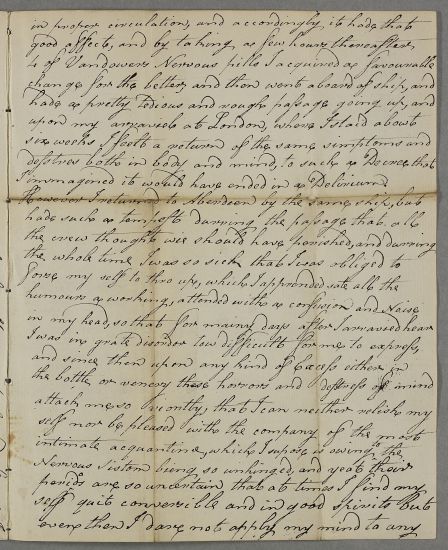 in proper circulation, and accordingly it hade that
good effect, and by taking a few hours thereafter
4 of Vandowers Nervous pills I acquired a favourable
change for the better, and then went aboard of ship, and
hade a pretty Tedious and rough passage going up, and
upon my arraviele at London, where I staid about
six weeks, I feelt a return of the same simptoms and
destress both in body and mind, to such a Decree that
I immagined it would have ended in a Delirium.
However I returned to Aberdeen by the same ship, but
hade such a tempest durring the passage that all
the crew thought wee should have perished, and durring
the whole time I was so sick that I was obliged to
Force my self to thro up, which I apprended sate all the
humours a working, attended with a confusion and Noise
in my head, so that for mainy days after I arraved hear
I was in grate disorder low difficult for me to express,
and since then upon any kind of Excess either in
the bottle or venery these horrors and destress of mind
attack me so vicontly, that I can neither relish my
self nor be pleased with the company of the most
intimate acquantine, which I supose is owing the
Nervous Sistom being so unhinged, and yeat their
periods are so uncertain that at times I find my
self quit conversible and in good spirits but
even then I dare not apply my mind to any